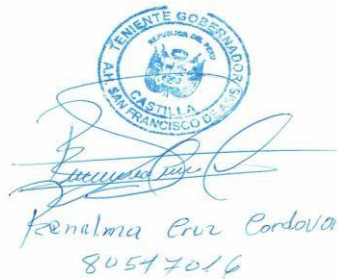 TENIENTE GOBERNADOR
REPUBLICA DEL PERU
CASTILLA
A.H. SAN FRANCISCO DE ASIS
Cruz Cordova
80517016